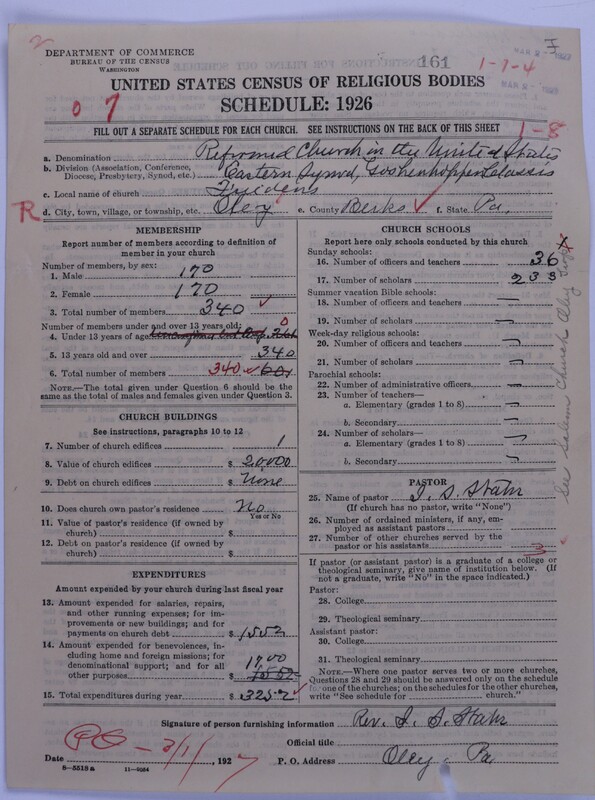 DEPARTMENT OF COMMERCE
BUREAU OF THE CENSUS
WASHINGTON
161
1-7-4
UNITED STATES CENSUS OF RELIGIOUS BODIES
SCHEDULE: 1926
0 7
FILL OUT A SEPARATE SCHEDULE FOR EACH CHURCH. SEE INSTRUCTIONS ON THE BACK OF THIS SHEET
1-8
a. Denomination Reformed Church in the United States
b. Division (Association, Conference, Diocese, Presbytery, Synod, etc.) Eastern Synod, Goshenhoppen Classis
c. Local name of church Friedens
R d. City, town, village, or township, etc. Oley e. County Berks f. State Pa.
MEMBERSHIP
Report number of members according to definition of
member in your church
Number of members, by sex:
1. Male 170
2. Female 170
3. Total number of members 340
Number of members under and over 13 years old:
4. Under 13 years of age 0
5. 13 years old and over 340
6. Total number of members 340
NOTE.—The total given under Question 6 should be the
same as the total of males and females given under Question 3.
CHURCH BUILDINGS
See instructions, paragraphs 10 to 12
7. Number of church edifices 1
8. Value of church edifices $ 20,000
9. Debt on church edifices $ None
10. Does church own pastor's residence? No
Yes or No
11. Value of pastor's residence (if owned by
church) $
12. Debt on pastor's residence (if owned by
church) $
EXPENDITURES
Amount expended by your church during last fiscal year
13. Amount expended for salaries, repairs,
and other running expenses; for im-
provements or new buildings; and for
payments on church debt $ 1552
14. Amount expended for benevolences,
including home and foreign missions; for
denominational support; and for all
other purposes $ 1700
15. Total expenditures during year $ 3252
CHURCH SCHOOLS
Report here only schools conducted by this church
Sunday schools:
16. Number of officers and teachers 36
17. Number of scholars 233
Summer vacation Bible schools:
18. Number of officers and teachers
19. Number of scholars
Week-day religious schools:
20. Number of officers and teachers
21. Number of scholars
Parochial schools:
22. Number of administrative officers
23. Number of teachers—
a. Elementary (grades 1 to 8)
b. Secondary
24. Number of scholars—
a. Elementary (grades 1 to 8)
b. Secondary
See Salem Church Oley
PASTOR
25. Name of pastor I. S. Stahr
(If church has no pastor, write "None")
26. Number of ordained ministers, if any, em-
ployed as assistant pastors
27. Number of other churches served by the
pastor or his assistants 3
If pastor (or assistant pastor) is a graduate of a college or
theological seminary, give name of institution below. (If
not a graduate, write "No" in the space indicated.)
Pastor:
28. College
29. Theological seminary
Assistant pastor:
30. College
31. Theological seminary
NOTE.—Where one pastor serves two or more churches,
Questions 28 and 29 should be answered only on the schedule
for one of the churches; on the schedules for the other churches,
write "See schedule for church."
Signature of person furnishing information Rev. I. S. Stahr
Official title
Date 3/1/, 1927 P. O. Address Oley Pa
8-5518a 11-9084